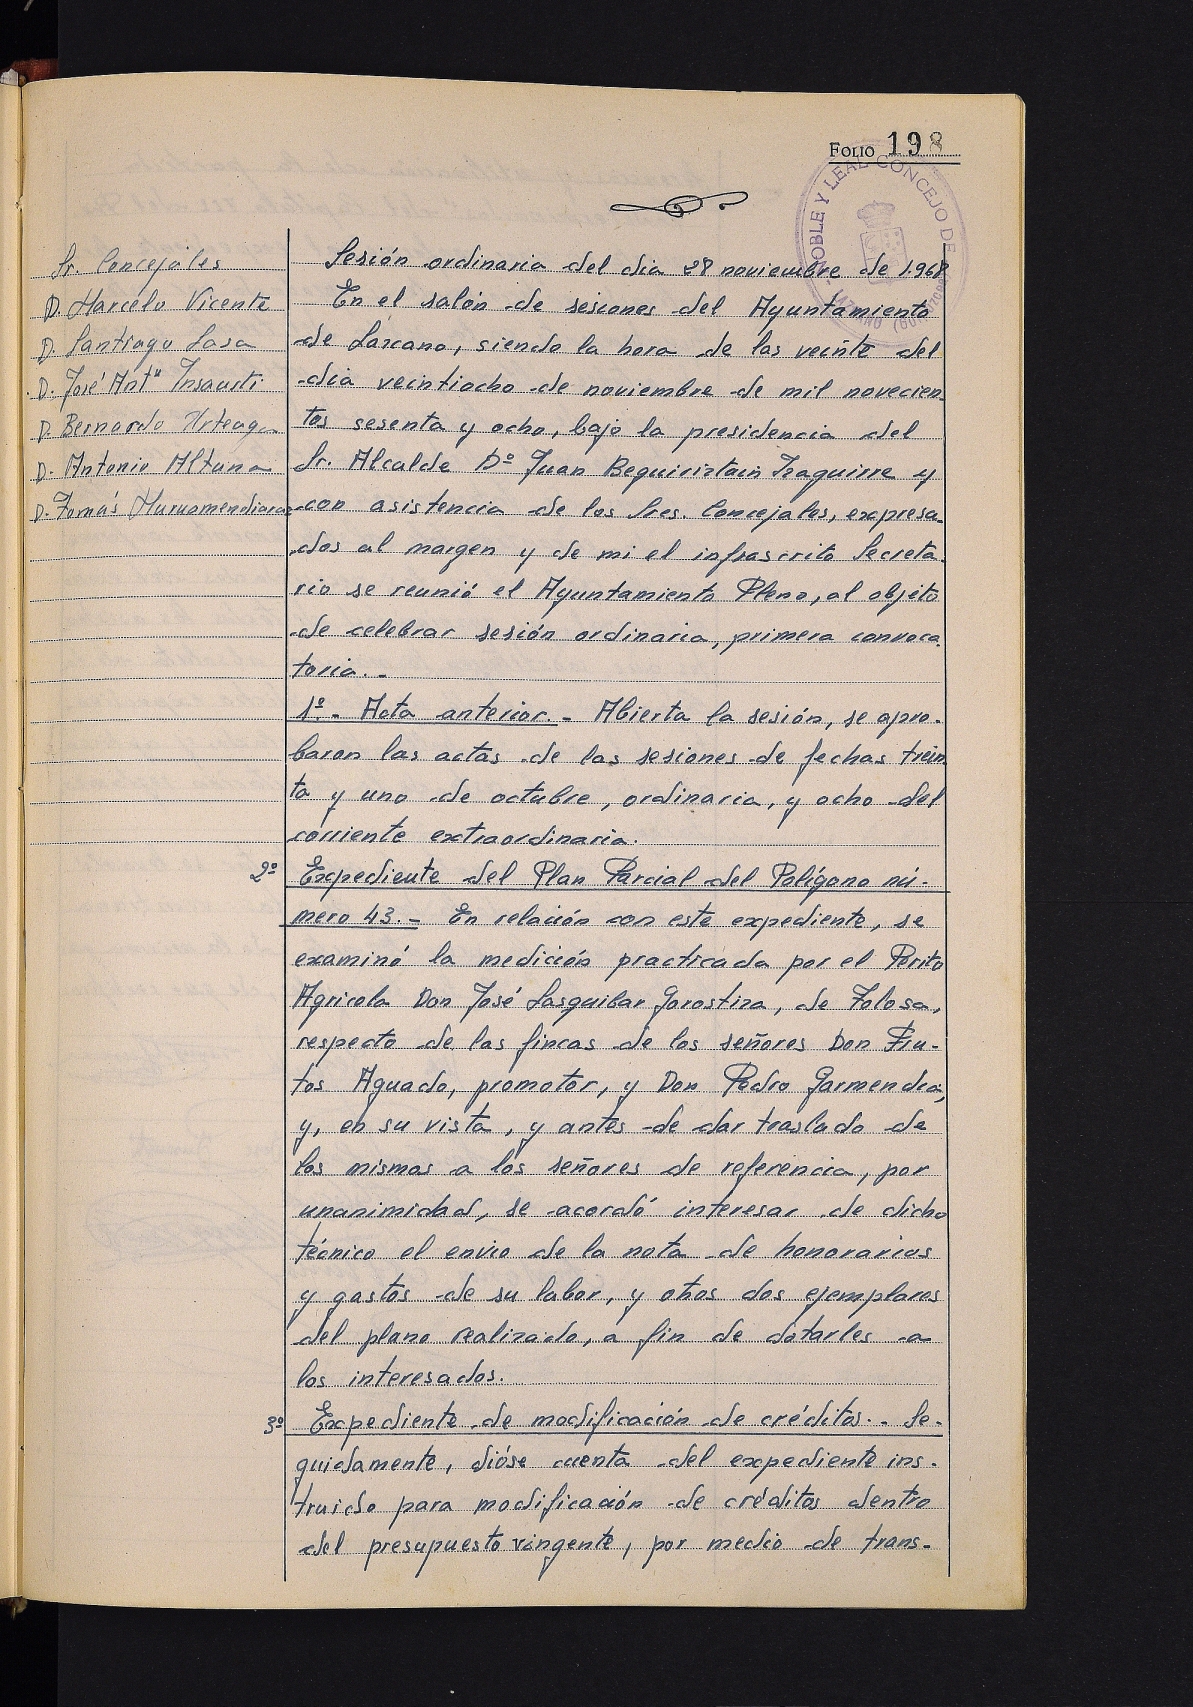 FOLIO 198
NOBLE Y LEAL CONCEJO DE
Sr. Concejales
D. Marcelo Vicente
D. Santiago Lasa
D. José Antº Insausti
D. Bernardo Urteaga
D. Antonio Altuna
D. Tomás Muruamendiaraz
Sesión ordinaria del dia 28 noviembre de 1.968
En el salón de sesiones del Ayuntamiento
de Lazcano, siendo la hora de las veinte del
dia veintiocho de noviembre de mil novecien-
tos sesenta y ocho, bajo la presidencia del
Sr. Alcalde Dº Juan Beguiristain Izaguirre y
con asistencia de los Sres. Concejales, expresa-
dos al margen y de mi el infrascrito Secreta-
rio se reunió el Ayuntamiento Pleno, al objeto
de celebrar sesión ordinaria, primera convoca-
toria.-
1º.- Acta anterior.- Abierta la sesión, se apro-
baron las actas de las sesiones de fechas trein-
ta y uno de octubre, ordinaria, y ocho del
corriente extraordinaria.
2º Expediente del Plan Parcial del Polígono nú-
mero 43.- En relación con este expediente, se
examinó la medición practicada por el Perito
Agricola Don José Lasquibar Gorostiza, de Tolosa,
respecto de las fincas de los señores Don Fru-
tos Aguado, promotor, y Don Pedro Garmendia,
y, en su vista, y antes de dar traslado de
los mismos a los señores de referencia, por
unanimidad, se acordó interesar de dicho
técnico el envio de la nota de honorarios
y gastos de su labor, y otros dos ejemplares
del plano realizado, a fin de dotarles a
los interesados.
3º Expediente de modificación de créditos.- Se-
guidamente, dióse cuenta del expediente ins-
truido para modificación de créditos dentro
del presupuesto vingente, por medio de trans-